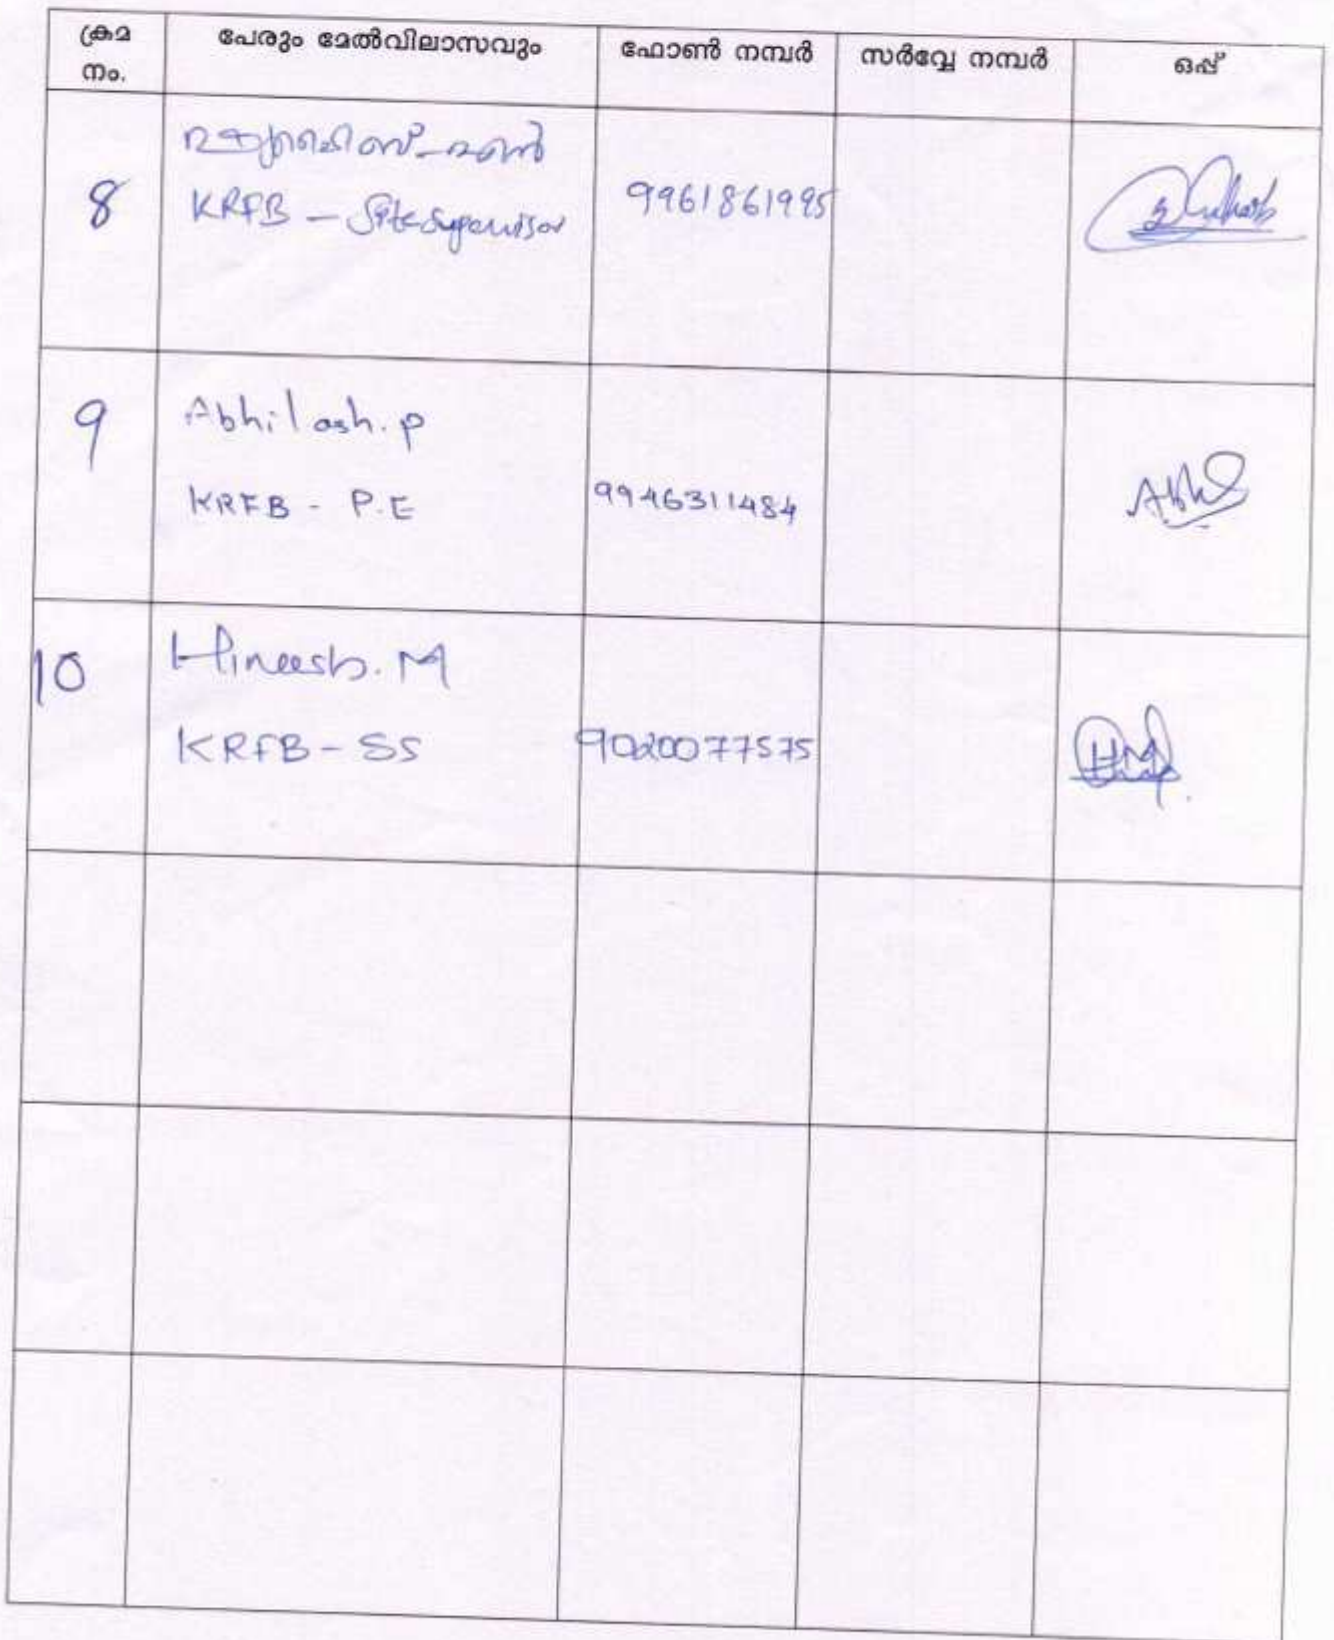 ക്രമ നം. പേരും മേൽവിലാസവും ഫോൺ നമ്പർ സർവ്വേ നമ്പർ ഒപ്പ്
8 KRFB – Site Supervisor 9961861995
9 Abhilash. P
KRFB - P.E 9946311484
Abhi
10 Hineesh. M
KRFB - SS 9020077575